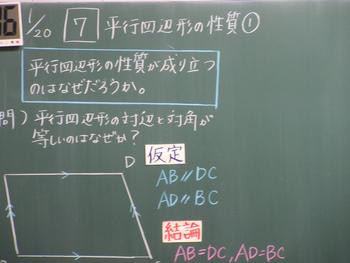 1/20 7 平行四辺形の性質①
平行四辺形の性質が成り立つ
のはなぜだろうか。
問）平行四辺形の対辺と対角が
等しいのはなぜか？
D
仮定
AB∥DC
AD∥BC
結論
AB=DC, AD=BC